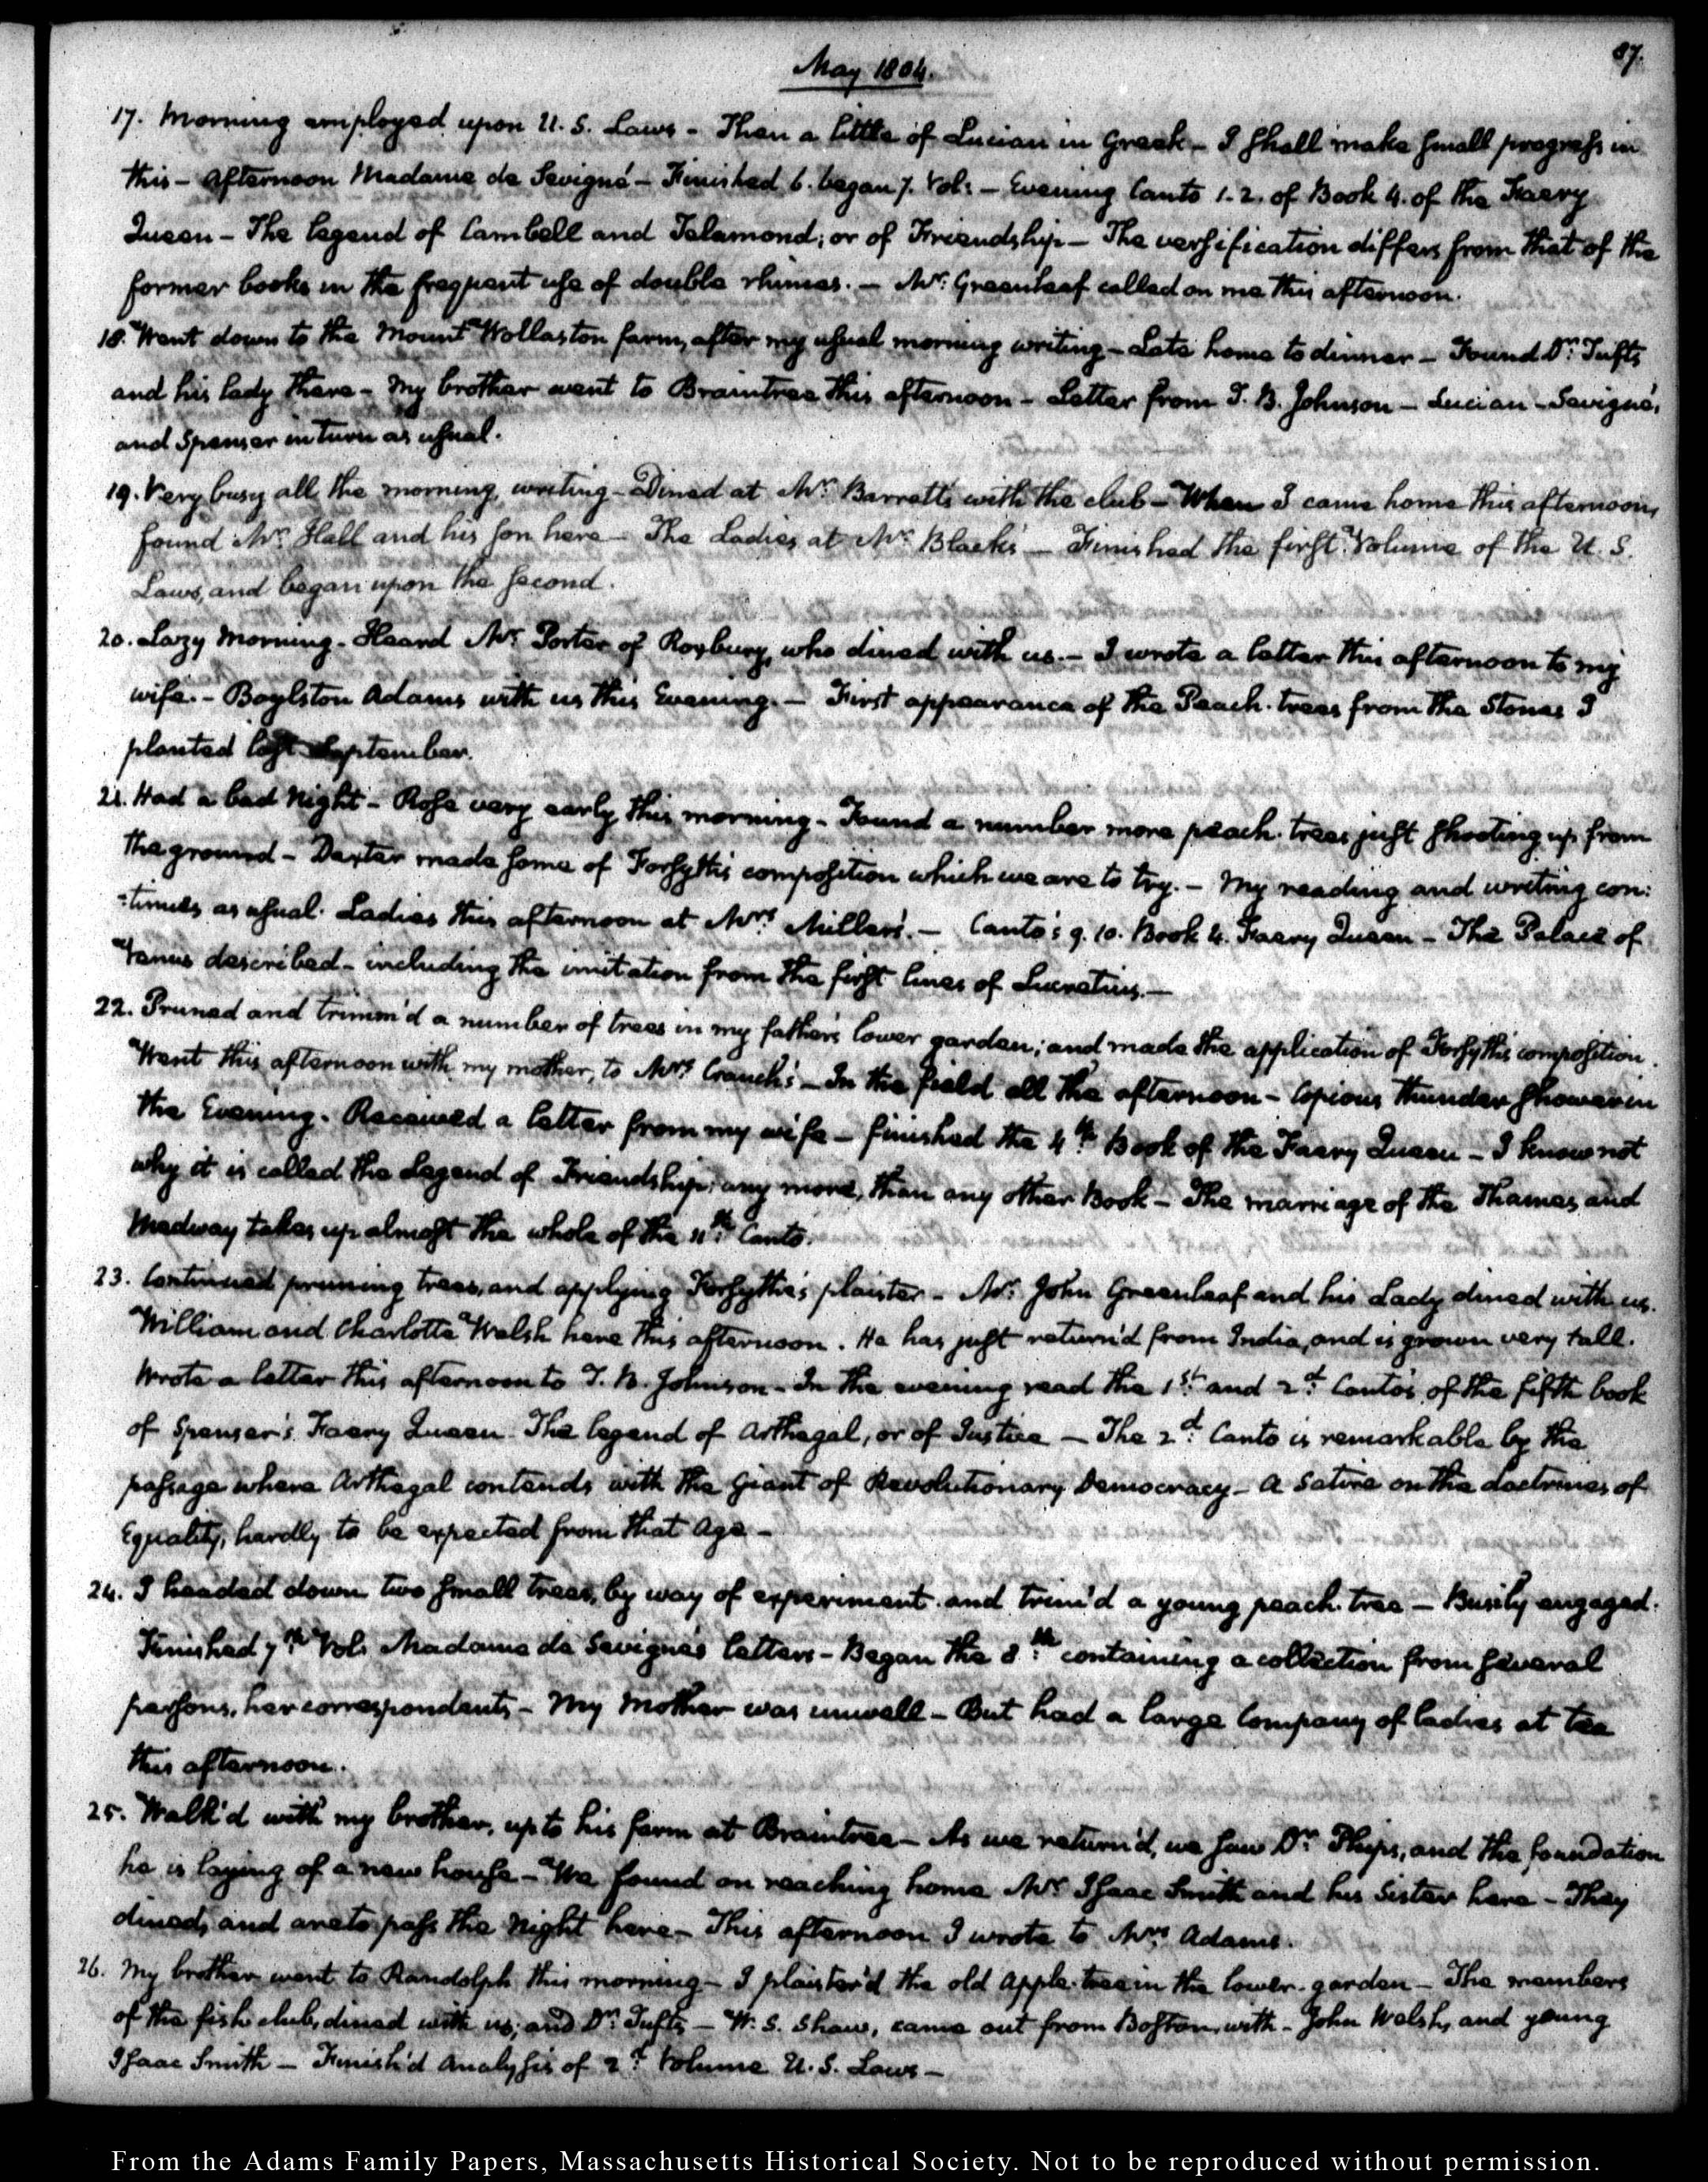 87.
May 1804.
17. Morning employed upon U. S. Laws - Then a little of Lucian in Greek - I shall make small progress in
this - Afternoon Madame de Sevigné - Finished 6. began 7. Vol: - Evening Canto 1. 2. of Book 4. of the Faery
Queen - The legend of Cambell and Telamond; or of Friendship - The versification differs from that of the
former books in the frequent use of double rhimes. - Mr: Greenleaf called on me this afternoon.
18. Went down to the Mount Wollaston farm, after my usual morning writing - Late home to dinner - Found Dr: Tufts
and his lady there - My brother went to Braintree this afternoon - Letter from T. B. Johnson - Lucian - Sevigné,
and Spenser in turn as usual.
19. Very busy all the morning, writing - Dined at Mr: Barrett's with the club - When I came home this afternoon,
found Mr: Hall and his son here - The Ladies at Mr: Black's - Finished the first Volume of the U. S.
Laws, and began upon the second.
20. Lazy Morning - Heard Mr: Porter of Roxbury, who dined with us. - I wrote a letter this afternoon to my
wife. - Boylston Adams with us this Evening. - First appearance of the Peach-trees from the Stones I
planted last September.
21. Had a bad Night - Rose very early this morning - Found a number more peach-trees just shooting up from
the ground - Dexter made some of Forsyth's composition which we are to try. - My reading and writing con:
:tinues as usual. Ladies this afternoon at Mrs: Miller's. - Canto's 9. 10. Book 4. Faery Queen - The Palace of
Venus described - including the imitation from the first lines of Lucretius. -
22. Pruned and trimm'd a number of trees in my father's lower garden; and made the application of Forsyth's composition.
Went this afternoon with my mother, to Mrs: Cranch's - In the field all the afternoon - Copious thunder shower in
the Evening. Received a letter from my wife - finished the 4th: Book of the Faery Queen - I know not
why it is called the Legend of Friendship; any more, than any other Book - The marriage of the Thames and
Medway takes up almost the whole of the 11th: Canto.
23. Continued pruning trees, and applying Forsythe's plaister - Mr: John Greenleaf and his Lady dined with us.
William and Charlotte Welsh here this afternoon. He has just return'd from India, and is grown very tall.
Wrote a letter this afternoon to T. B. Johnson - In the evening read the 1st: and 2d: Canto's of the fifth book
of Spenser's Faery Queen - The legend of Arthegal, or of Justice - The 2d: Canto is remarkable by the
passage where Arthegal contends with the Giant of Revolutionary Democracy - A Satire on the doctrines of
Equality, hardly to be expected from that Age -
24. I headed down two small trees, by way of experiment and trim'd a young peach-tree - Busily engaged.
Finished 7th: Vol: Madame de Sevigné's letters - Began the 8th: containing a collection from several
persons, her correspondents - My Mother was unwell - But had a large Company of ladies at tea
this afternoon.
25. Walk'd with my brother, up to his farm at Braintree - As we return'd, we saw Dr: Phips, and the foundation
he is laying of a new house - We found on reaching home Mr: Isaac Smith and his Sister here - They
dined, and are to pass the Night here - This afternoon I wrote to Mrs: Adams.
26. My brother went to Randolph this morning - I plaister'd the old Apple-tree in the lower-garden - The members
of the fish-club, dined with us; and Dr: Tufts - W. S. Shaw, came out from Boston, with - John Welsh, and young
Isaac Smith - Finish'd Analysis of 2d: Volume U. S. Laws -
From the Adams Family Papers, Massachusetts Historical Society. Not to be reproduced without permission.